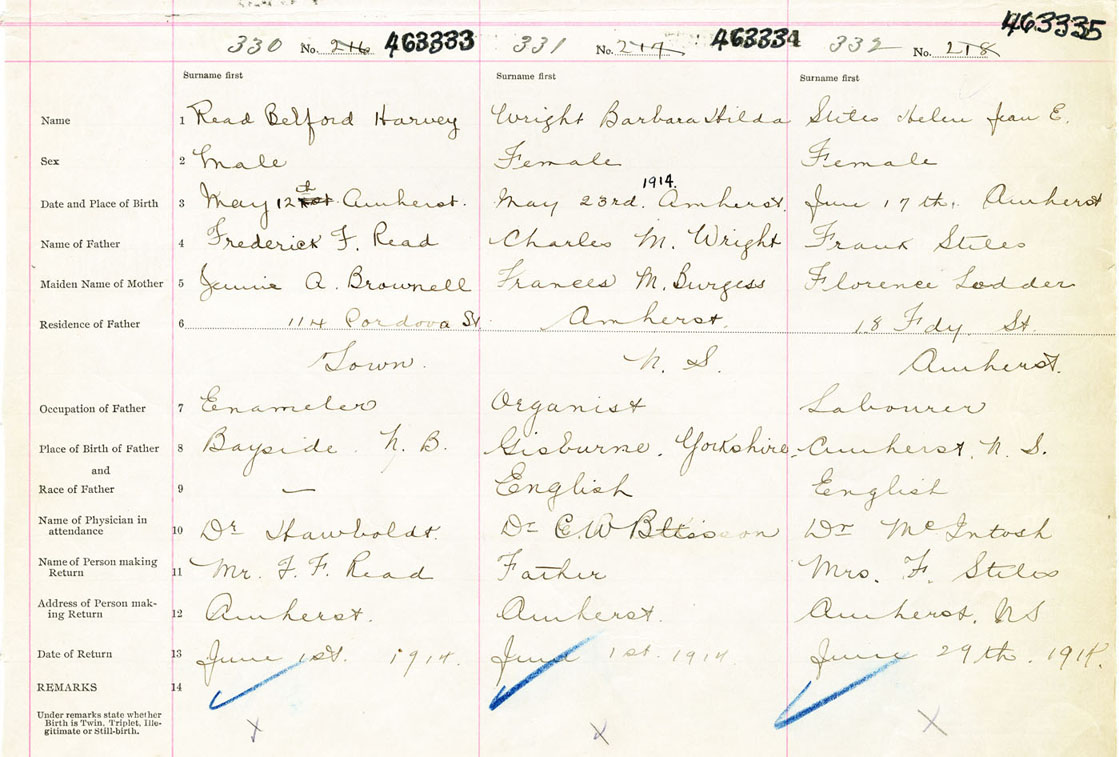 330 No. 216 463333 331 No. 217 463334 332 No. 218 463335
Surname first Surname first Surname first
Name 1 Read Belford Harvey Wright Barbara Hilda Stiles Helen Jean E.
Sex 2 Male Female Female
1914.
Date and Place of Birth 3 May 12th Amherst. May 23rd. Amherst. June 17th. Amherst
Name of Father 4 Frederick F. Read Charles M. Wright Frank Stiles
Maiden Name of Mother 5 Jennie A. Brownell Frances M. Burgess Florence Lodder
Residence of Father 6 114 Cordova St. Amherst. 18 Fdy St.
Town. N. S. Amherst.
Occupation of Father 7 Enameler Organist Labourer
Place of Birth of Father 8 Bayside. N. B. Gisburne. Yorkshire. Amherst. N. S.
and
Race of Father 9 — English English
Name of Physician in
attendance 10 Dr Hawboldt. Dr C. W Dr McIntosh
Name of Person making
Return 11 Mr. F. F. Read Father Mrs. F. Stiles
Address of Person mak-
ing Return 12 Amherst. Amherst. Amherst. NS
Date of Return 13 June 1st. 1914. June 1st. 1914 June 29th. 1914.
REMARKS 14
Under remarks state whether
Birth is Twin, Triplet, Ille-
gitimate or Still-birth. x x x